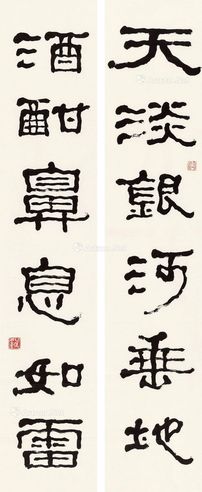 天淡銀河垂地
酒酣鼻息如雷